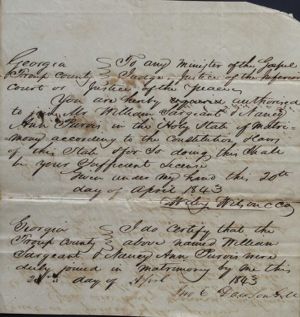 Georgia } To any Minister of the Gospel
Troup County } Judge, Justice of the Inferior
Court or Justice of the Peace
You are hereby authorized
to join Mr William Sargeant & Nancy
Ann Purvis in the Holy State of Matri-
mony according to the Constitution & Laws
of this State & for So doing this Shall
be your Sufficient License
Given under my hand this 20th
day of April 1843
Wiley Wilson CCO
Georgia } I do Certify that the
Troup County } above named William
Sargeant & Nancy Ann Purvis were
duly joined in matrimony by me this
day of April 1843